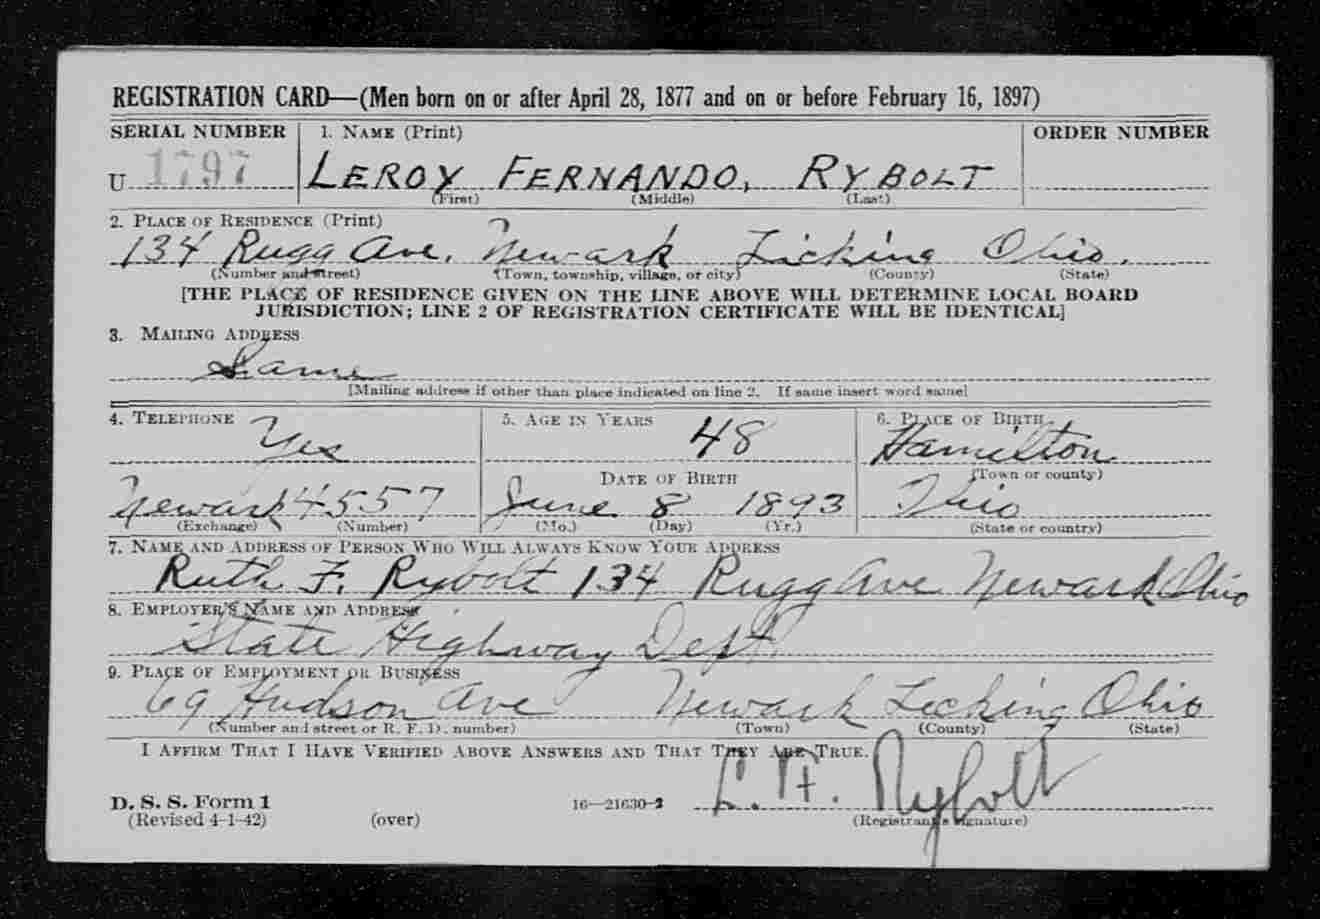 REGISTRATION CARD—(Men born on or after April 28, 1877 and on or before February 16, 1897)
SERIAL NUMBER 1. NAME (Print) ORDER NUMBER
U 1797 LEROY FERNANDO, RYBOLT
(First) (Middle) (Last)
2. PLACE OF RESIDENCE (Print)
134 Rugg Ave. Newark Licking Ohio.
(Number and street) (Town, township, village, or city) (County) (State)
[THE PLACE OF RESIDENCE GIVEN ON THE LINE ABOVE WILL DETERMINE LOCAL BOARD
JURISDICTION; LINE 2 OF REGISTRATION CERTIFICATE WILL BE IDENTICAL]
3. MAILING ADDRESS
Same
[Mailing address if other than place indicated on line 2. If same insert word same]
4. TELEPHONE 5. AGE IN YEARS 6. PLACE OF BIRTH
Yes 48 Hamilton
DATE OF BIRTH (Town or county)
Newark 4557 June 8 1893 Ohio
(Exchange) (Number) (Mo.) (Day) (Yr.) (State or country)
7. NAME AND ADDRESS OF PERSON WHO WILL ALWAYS KNOW YOUR ADDRESS
Ruth F. Rybolt 134 Rugg Ave Newark Ohio
8. EMPLOYER'S NAME AND ADDRESS
State Highway Dept.
9. PLACE OF EMPLOYMENT OR BUSINESS
69 Hudson Ave Newark Licking Ohio
(Number and street or R. F. D. number) (Town) (County) (State)
I AFFIRM THAT I HAVE VERIFIED ABOVE ANSWERS AND THAT THEY ARE TRUE.
L. F. Rybolt
D. S. S. Form 1 16—21630-2
(Revised 4-1-42) (over) (Registrant's signature)